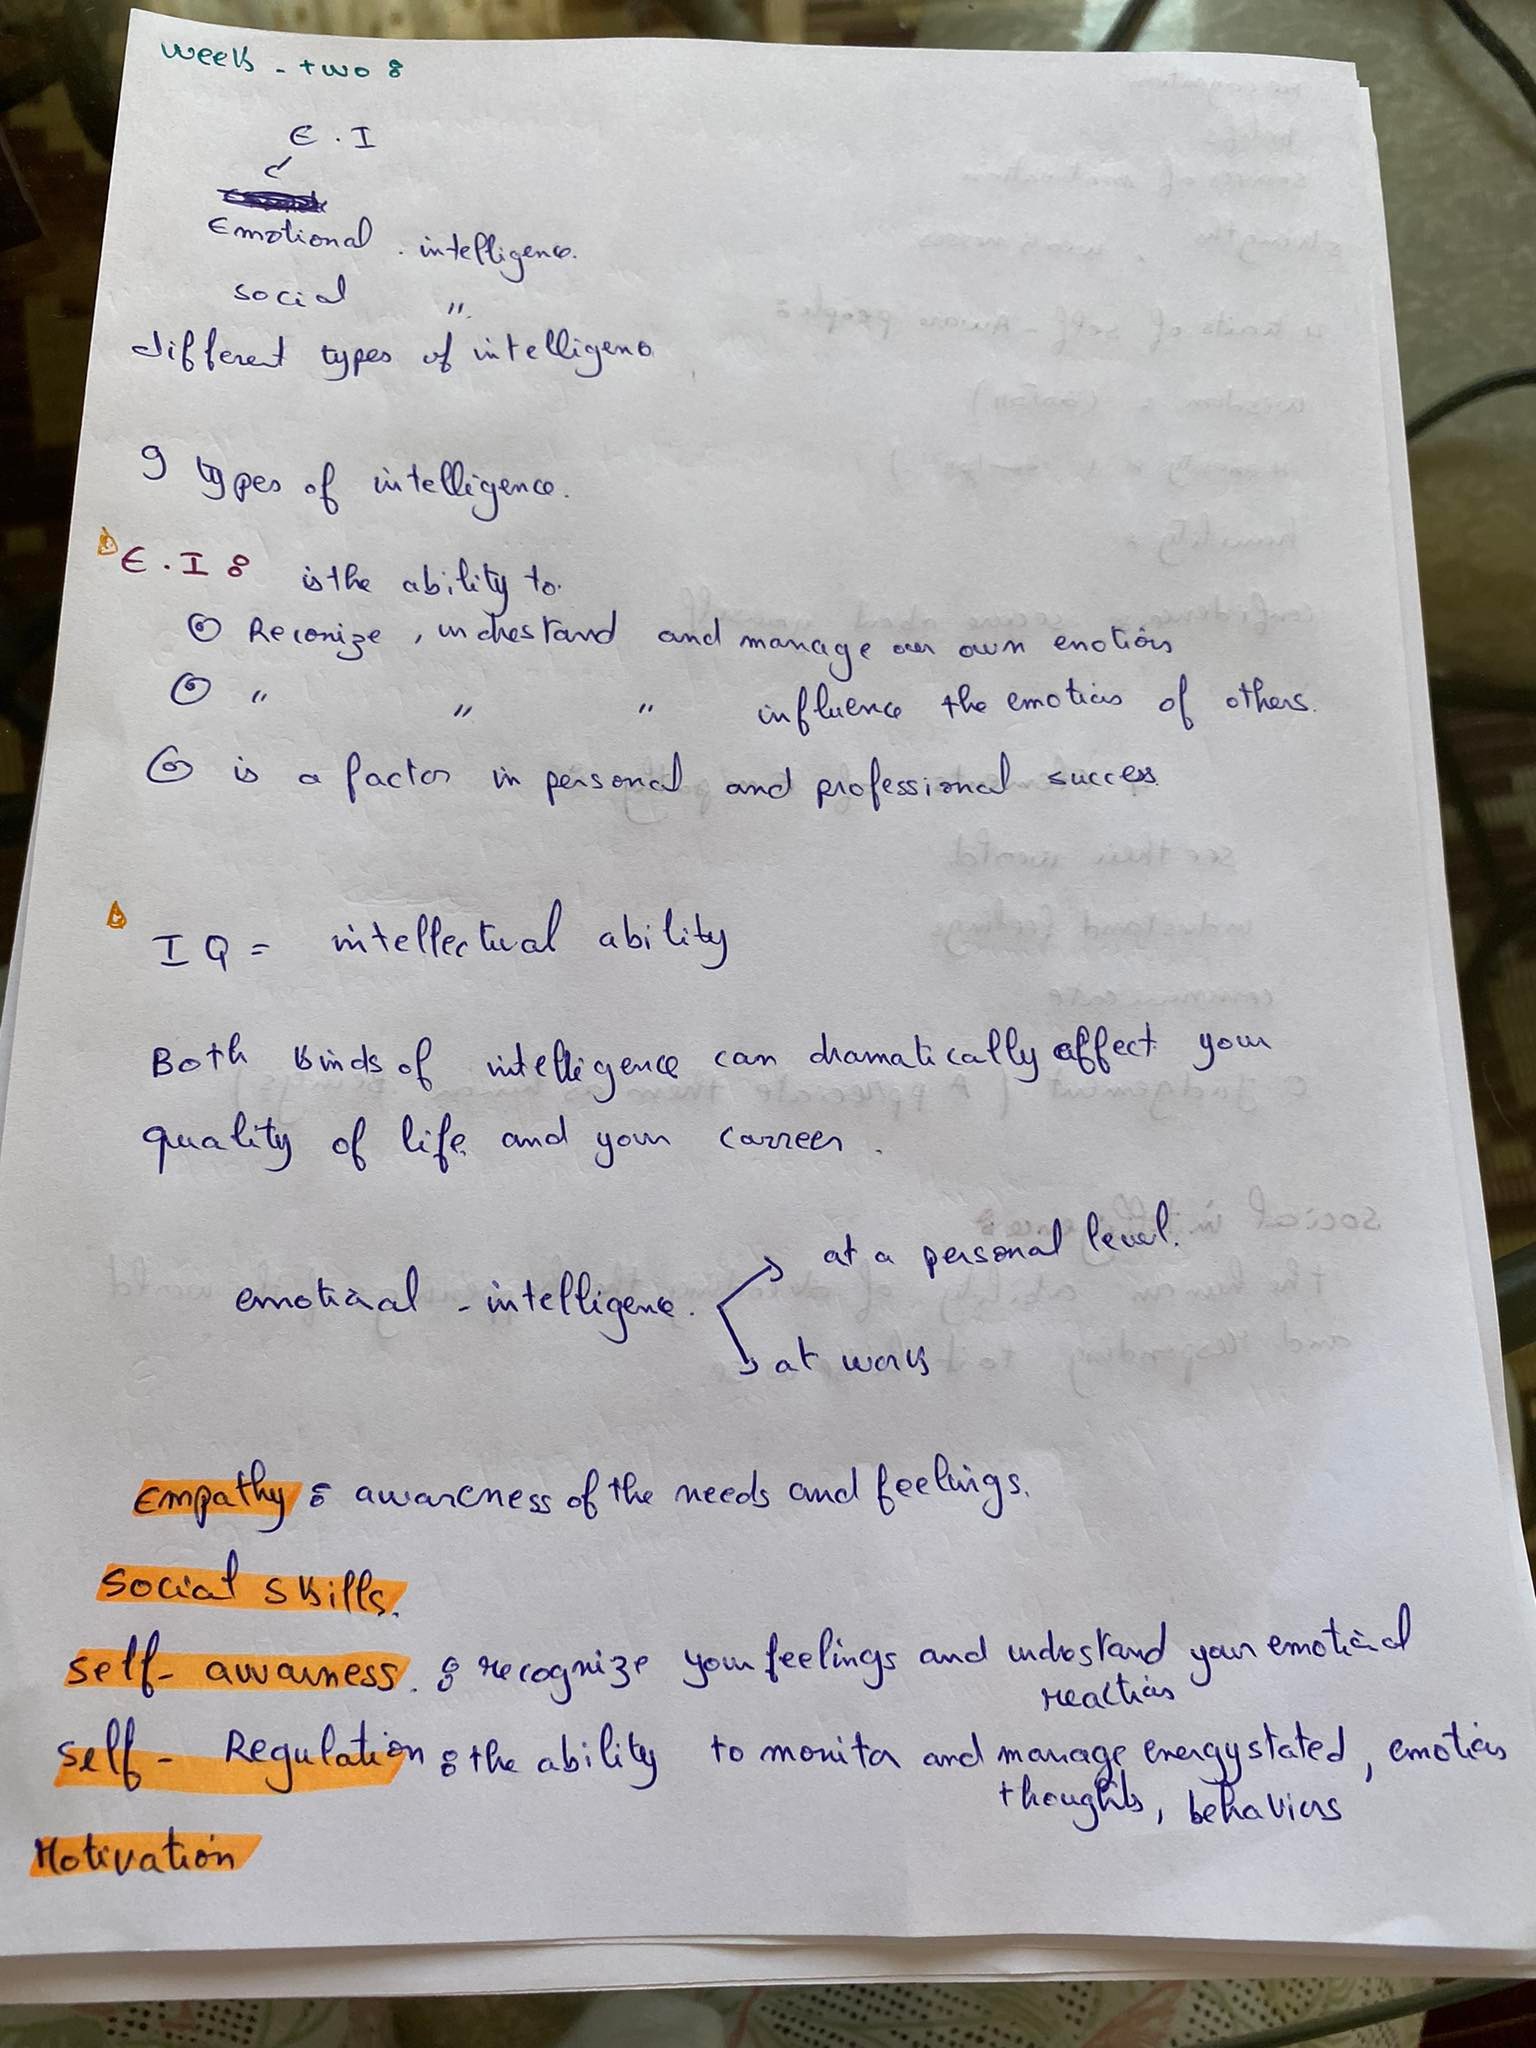 week - two :
E . I
Emotional intelligence.
social "
different types of intelligence
9 types of intelligence.
E . I : is the ability to
Reconize , understand and manage our own emotions
" " " influence the emotions of others.
is a factor in personal and professional success
I Q = intellectual ability
Both kinds of intelligence can dramatically affect your
quality of life and your carreer.
emotional - intelligence. at a personal level.
at work
Empathy : awareness of the needs and feelings.
social skills.
self - awarness. : recognize your feelings and understand your emotional
reactions
self - Regulation : the ability to monitor and manage energy stated, emotions
thoughts, behaviors
Motivation